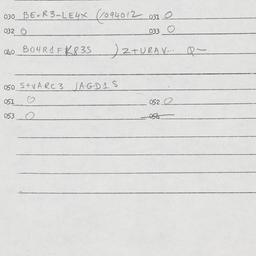 030 BE-R3-LE4X (1094012 031 0
032 0 033 0
040 BOHR1FKR3S ) Z+URAV-- Q-
050 S+VARC3 JAGD1S
051 0 052 0
053 0 054